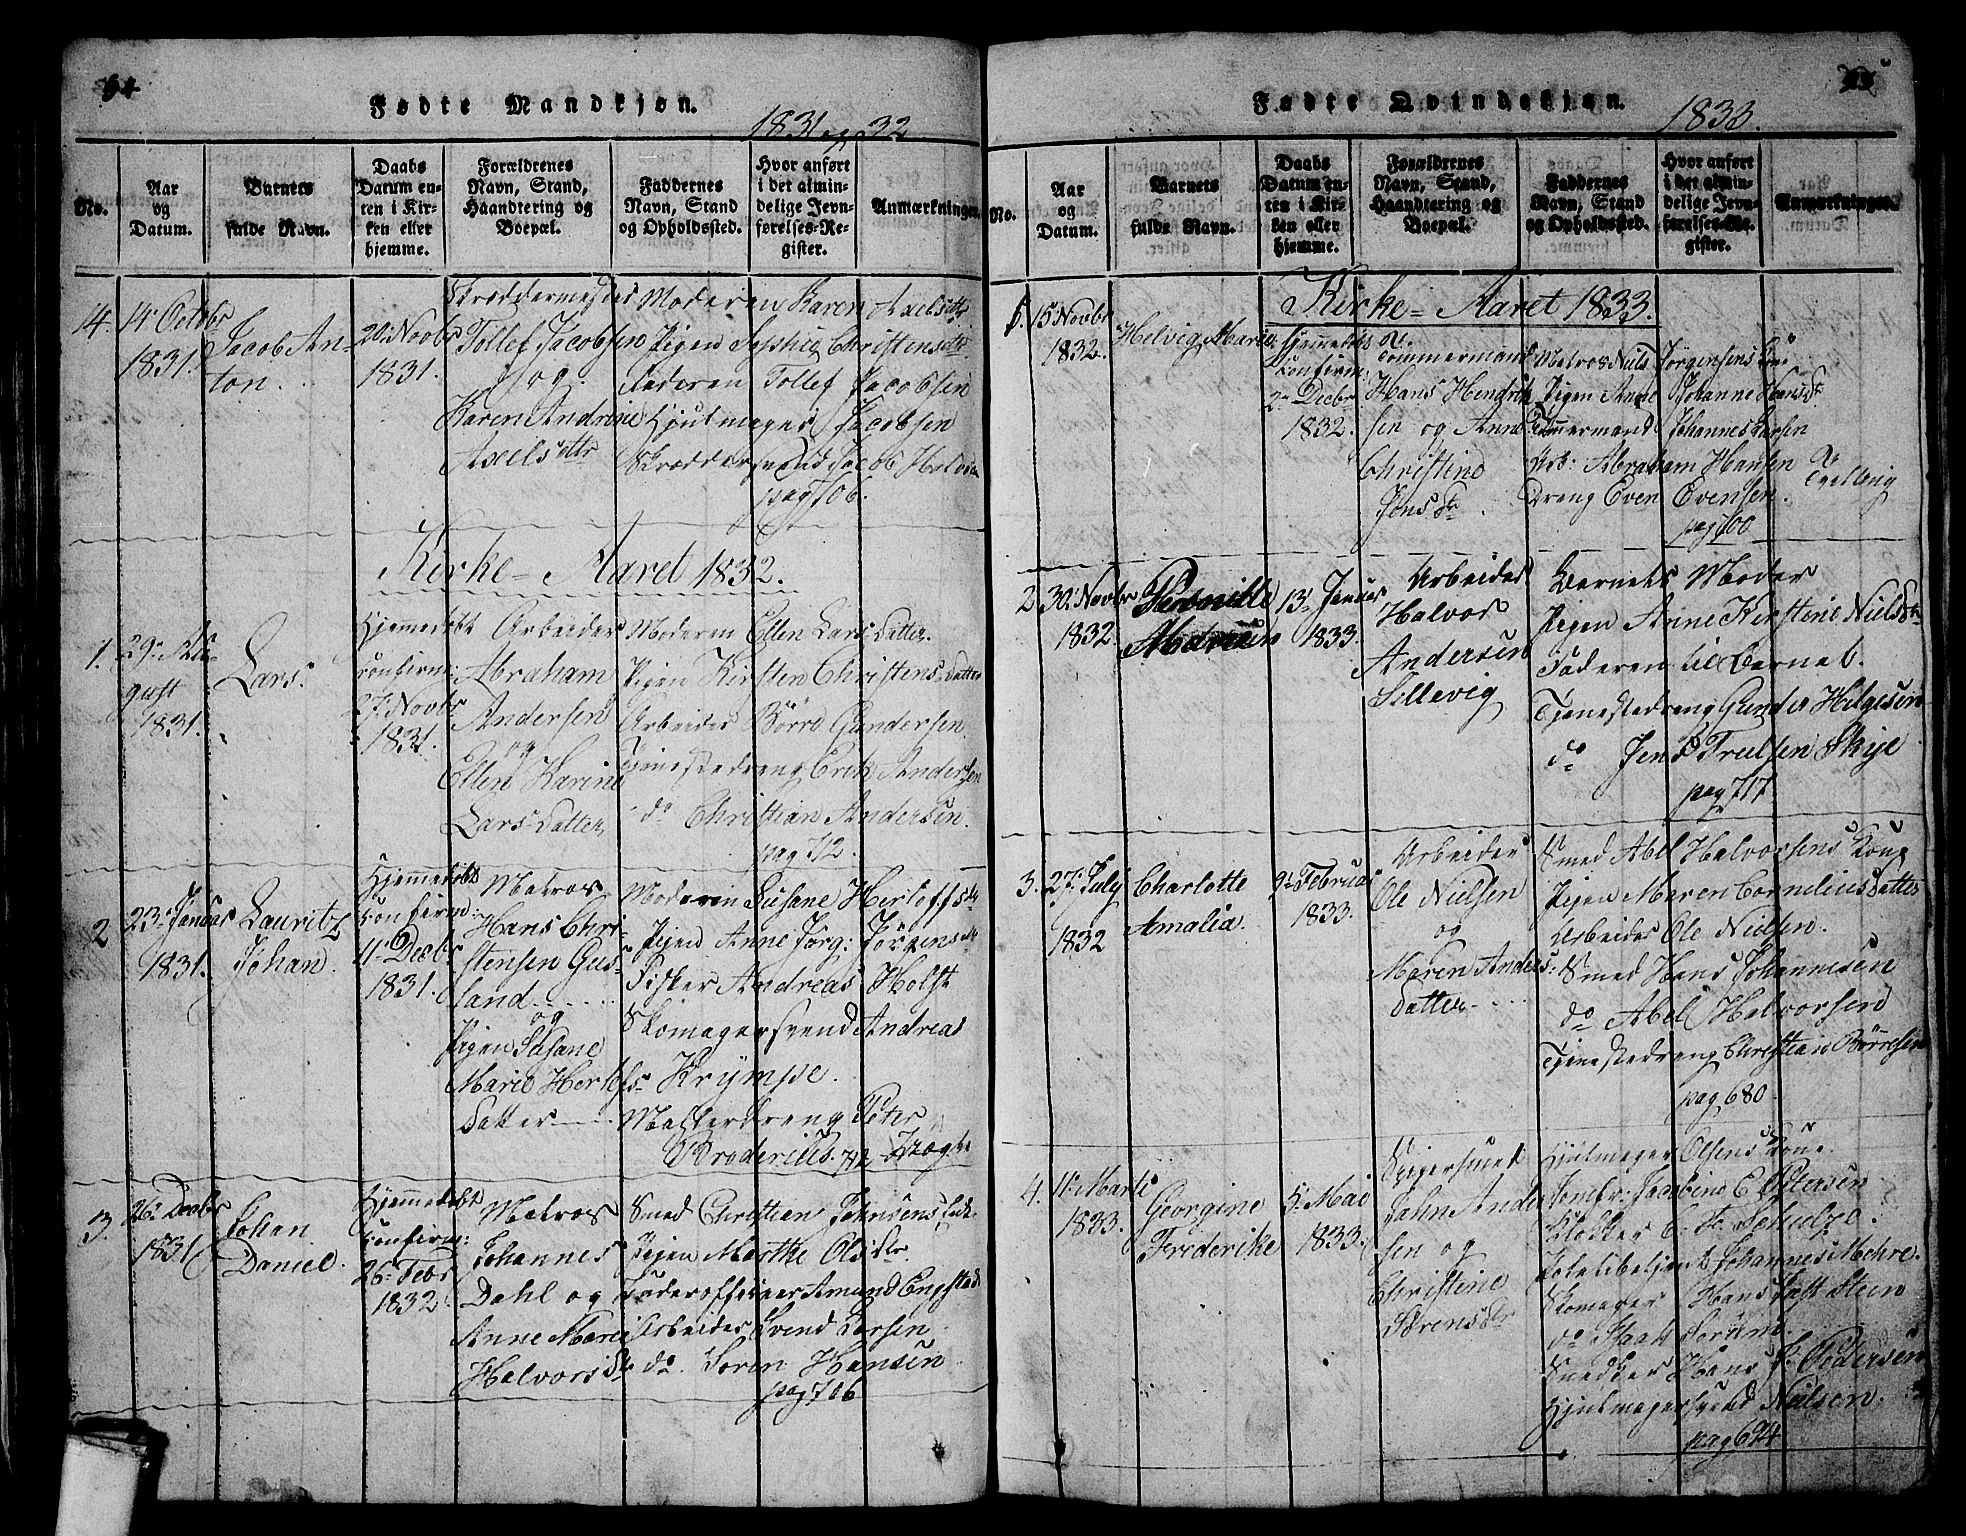 64
Fødte Mandkjøn.
1831 og 32
No.
Aar
og
Datum.
Barnets
fulde Navn.
Daabs
Datum en-
ten i Kir-
ken eller
hjemme.
Forældrenes
Navn, Stand,
Haandtering og
Boepæl.
Faddernes
Navn, Stand
og Opholdssted.
Hvor anført
i det almin-
delige Jevn-
førelses-Re-
gister.
Anmærkninger.
14.
14 Octobr
1831.
Jacob An-
ton.
20. Novbr
1831.
Skreddermester
Tollef Jacobsen
og
Karen Andrine
Axels dttr
Moderen Karen Axelsdttr
Pigen Sophie Christensdtr
Faderen Tollef Jacobsen
Hjulmager Jacobsen
Skreddersvend Jacob
pag 706.
Kirke-Aaret 1832.
1.
29. Au-
gust
1831.
Lars.
Hjemmedøbt
confirm:
27. Novbr
1831.
Arbeider
Abraham
Andersen
og
Ellen Karine
Lars Datter
Moderen Ellen Lars Datter.
Pigen Kirsten Christens Datter
Arbeider Børre Gundersen
Tjenestedreng Erik Andersen
do Christian Andersen.
pag 712.
2
23. Januar
1831.
Lauritz
Johan.
Hjemmedøbt
confirm:
11. Decbr
1831.
Matros
Hans Chri-
stensen Gus-
land
og
Pigen Susane
Marie Herlofs-
Datter
Moderen Susane Herloffsdtr
Pigen Anne Jørg: Jørgensdtr
Fisker Andreas Holst
Skomagersvend Andreas
Krympe.
Matrosdreng Peter
Broderius. 712
3.
26. Decbr
1831
Johan
Daniel.
Hjemmedøbt
confirm:
26. Febr
1832.
Matros
Johannes
Dahl og
Anne Marie
Halvors Dr
Smed Christian Johnsens Enke
Pigen Marthe Ols Dr.
Underofficeer Amund Engstad
Arbeider Svend Larsen
do. Søren Hansen
pag 706
65
Fødte Qvindekjøn.
1833.
No.
Aar
og
Datum.
Barnets
fulde Navn.
Daabs
Datum en-
ten i Kir-
ken eller
hjemme.
Forældrenes
Navn, Stand,
Haandtering og
Boepæl.
Faddernes
Navn, Stand
og Opholdssted.
Hvor anført
i det almin-
delige Jevn-
førelses-Re-
gister.
Anmærkninger.
Kirke-Aaret 1833.
1.
15 Novbr
1832.
Helvig Marie
Hjemmedøbt
confirm:
2. Decbr
1832.
Tømmermand
Hans Hendrik-
sen og Anne
Christine
Jens Dr.
Matros Niels Jørgensens Kone
Pigen Anne Johanne Hans Dr
Tømmermand Johannes Larsen
Arb: Abraham Hansen
Dreng Even Evensen.
pag 700
2.
30. Novbr
1832.
Pernille
13. Januar
1833.
Arbeider
Halvor
Andersen
Sillevig
Barnets Moder
Pigen Anne Kirstine Niels Dr
Faderen til Barnet.
Tjenestedreng Gunder Helgesen
do Jens Truelsen Skye
pag 717
3.
27. July
1832
Charlotte
Amalia.
9. Februar
1833.
Arbeider
Ole Nielsen
og
Maren Anders:
Datter
Smed Abel Halvorsens Kone
Pigen Maren Cornelius Datter
Arbeider Ole Nielsen.
Smed Hans Johannesen
do Abel Halvorsen
Tjenestedreng Christian Børresen
pag 680.
4.
11. Marti
1833.
Georgine
Frederike
5. Mai
1833.
John Ander
sen og
Christine
Sørens Dr
Hjulmager Olsens Kone.
Jomfr: Jacobine E. Petersen
Klokker C. F. Schultze.
Johannes Mehre.
Skomager Hans Just Stein
do Isaak Sørum.
Snedker Hans P. Pedersen
Hjulmagersvend Nielsen.
pag 694